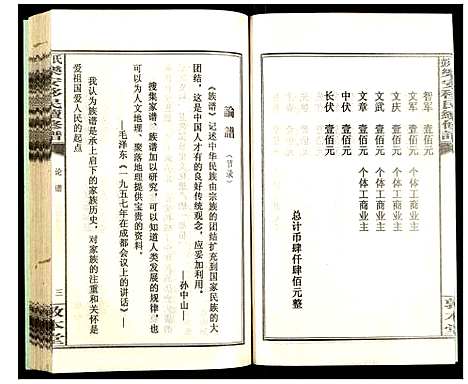 智军　壹佰元
文军　壹佰元　个体工商业主
文庆　壹佰元　个体工商业主
文武　壹佰元　个体工商业主
文章　壹佰元　个体工商业主
中伏　壹佰元
长伏　壹佰元
总计币肆仟肆佰元整
敦本堂
论谱（节录）
《族谱》记述中华民族由宗族的团结扩充到国家民族的大
团结，这是中国人才有的良好传统观念，应妥加利用。
——孙中山——
搜集家谱、族谱加以研究，可以知道人类发展的规律，也
可以为人文地理、聚落地理提供宝贵的资料。
——毛泽东《一九五七年在成都会议上的讲话》——
我认为族谱是承上启下的家族历史，对家族的注重和关怀是
爱祖国爱人民的起点
论谱
三
敦本堂